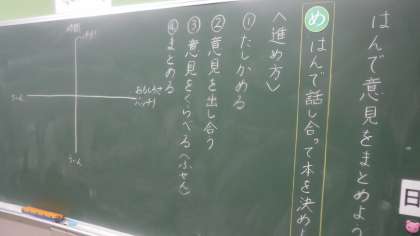 はんで意見をまとめよう
め
はんで話し合って本を決めよ
〈進め方〉
①たしかめる
②意見を出し合う
③意見をくらべる(ふせん)
④まとめる
時間
バッチリ
おもしろさ
バッチリ
うーん
うーん
日